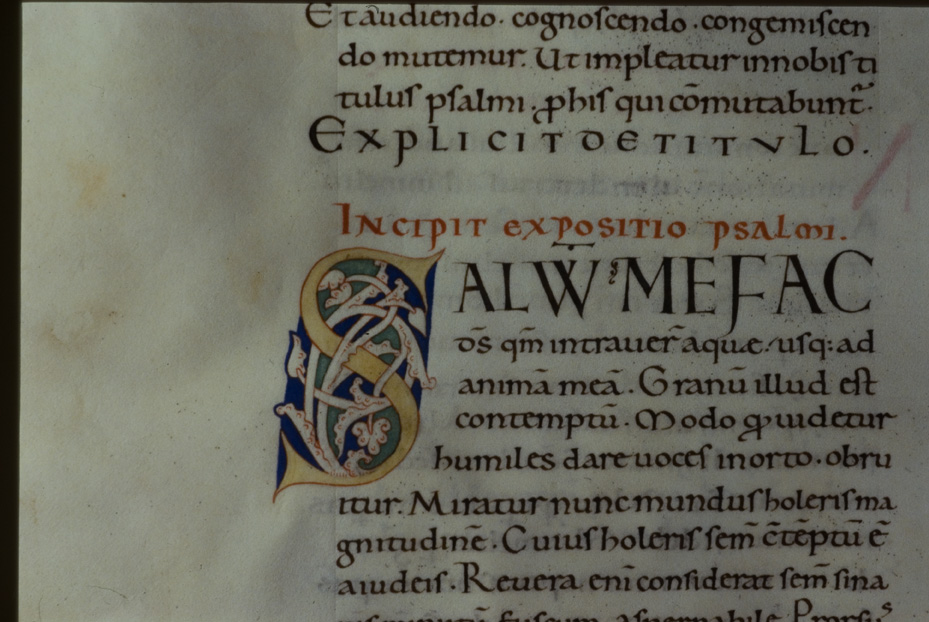 Et audiendo. cognoscendo. congemiscen
do mutemur. Ut impleatur in nobis ti
tulus psalmi. ꝓ his qui cōmutabunt̃.
EXPLICIT DE TITVLO.
INCIPIT EXPOSITIO PSALMI.
SALVV̄ ME FAC
d̄s qm̄ intrauer̄ aquę usq: ad
animā meā. Granū illud est
contemptū. Modo ꝙ uidetur
humiles dare uoces in orto. obru
itur. Miratur nunc mundus holeris ma
gnitudinē. Cuius holeris sem̄ c̄tēptū ē
a iudeis. Reuera eni considerat sem̄ sina